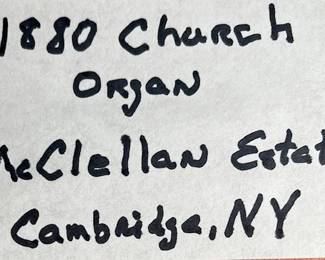 1880 Church
Organ
McClellan Estat
Cambridge, NY